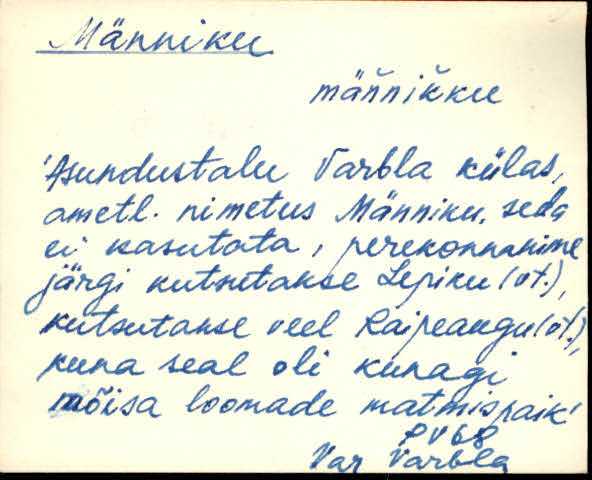 Männiku
män̆nik̆ku
'Asundustalu Varbla külas,
ametl. nimetus Männiku, seda
ei kasutata, perekonnanime
järgi kutsutakse Lepiku (vt.),
kutsutakse veel Raipeaugu (vt.),
kuna seal oli kunagi
mõisa loomade matmispaik'
PV68
Var Varbla